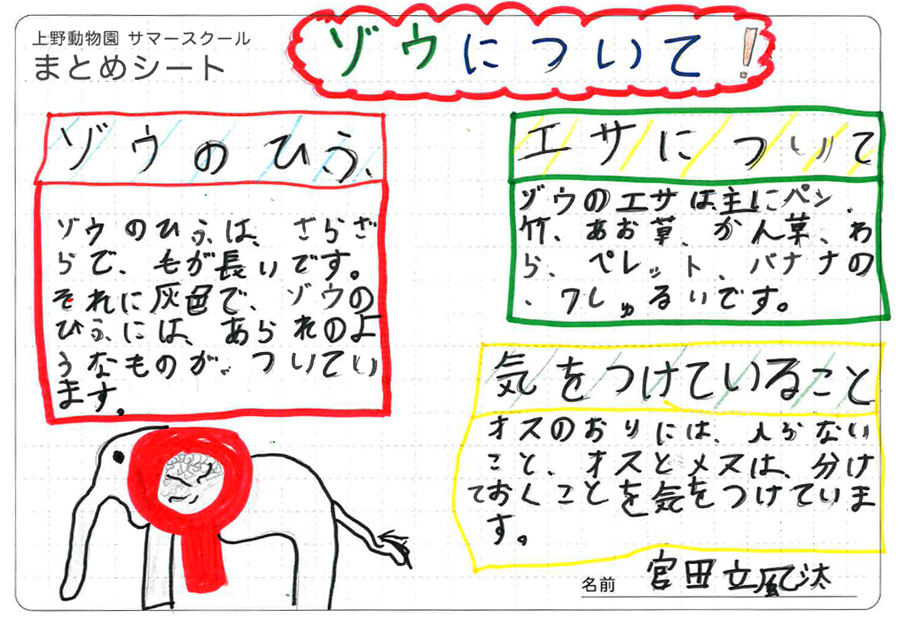 上野動物園 サマースクール
まとめシート
ゾウについて!
ゾウのひふ
ゾウのひふは、ざらざ
らで、毛が長いです。
それに灰色で、ゾウの
ひふには、あられのよ
うなものが、ついてい
ます。
エサについて
ゾウのエサは主にパン、
竹、あお草、かん草、わ
ら、ペレット、バナナの
、7しゅるいです。
気をつけていること
オスのおりには、入らない
こと、オスとメスは、分け
ておくことを気をつけていま
す。
名前 宮田立風汰